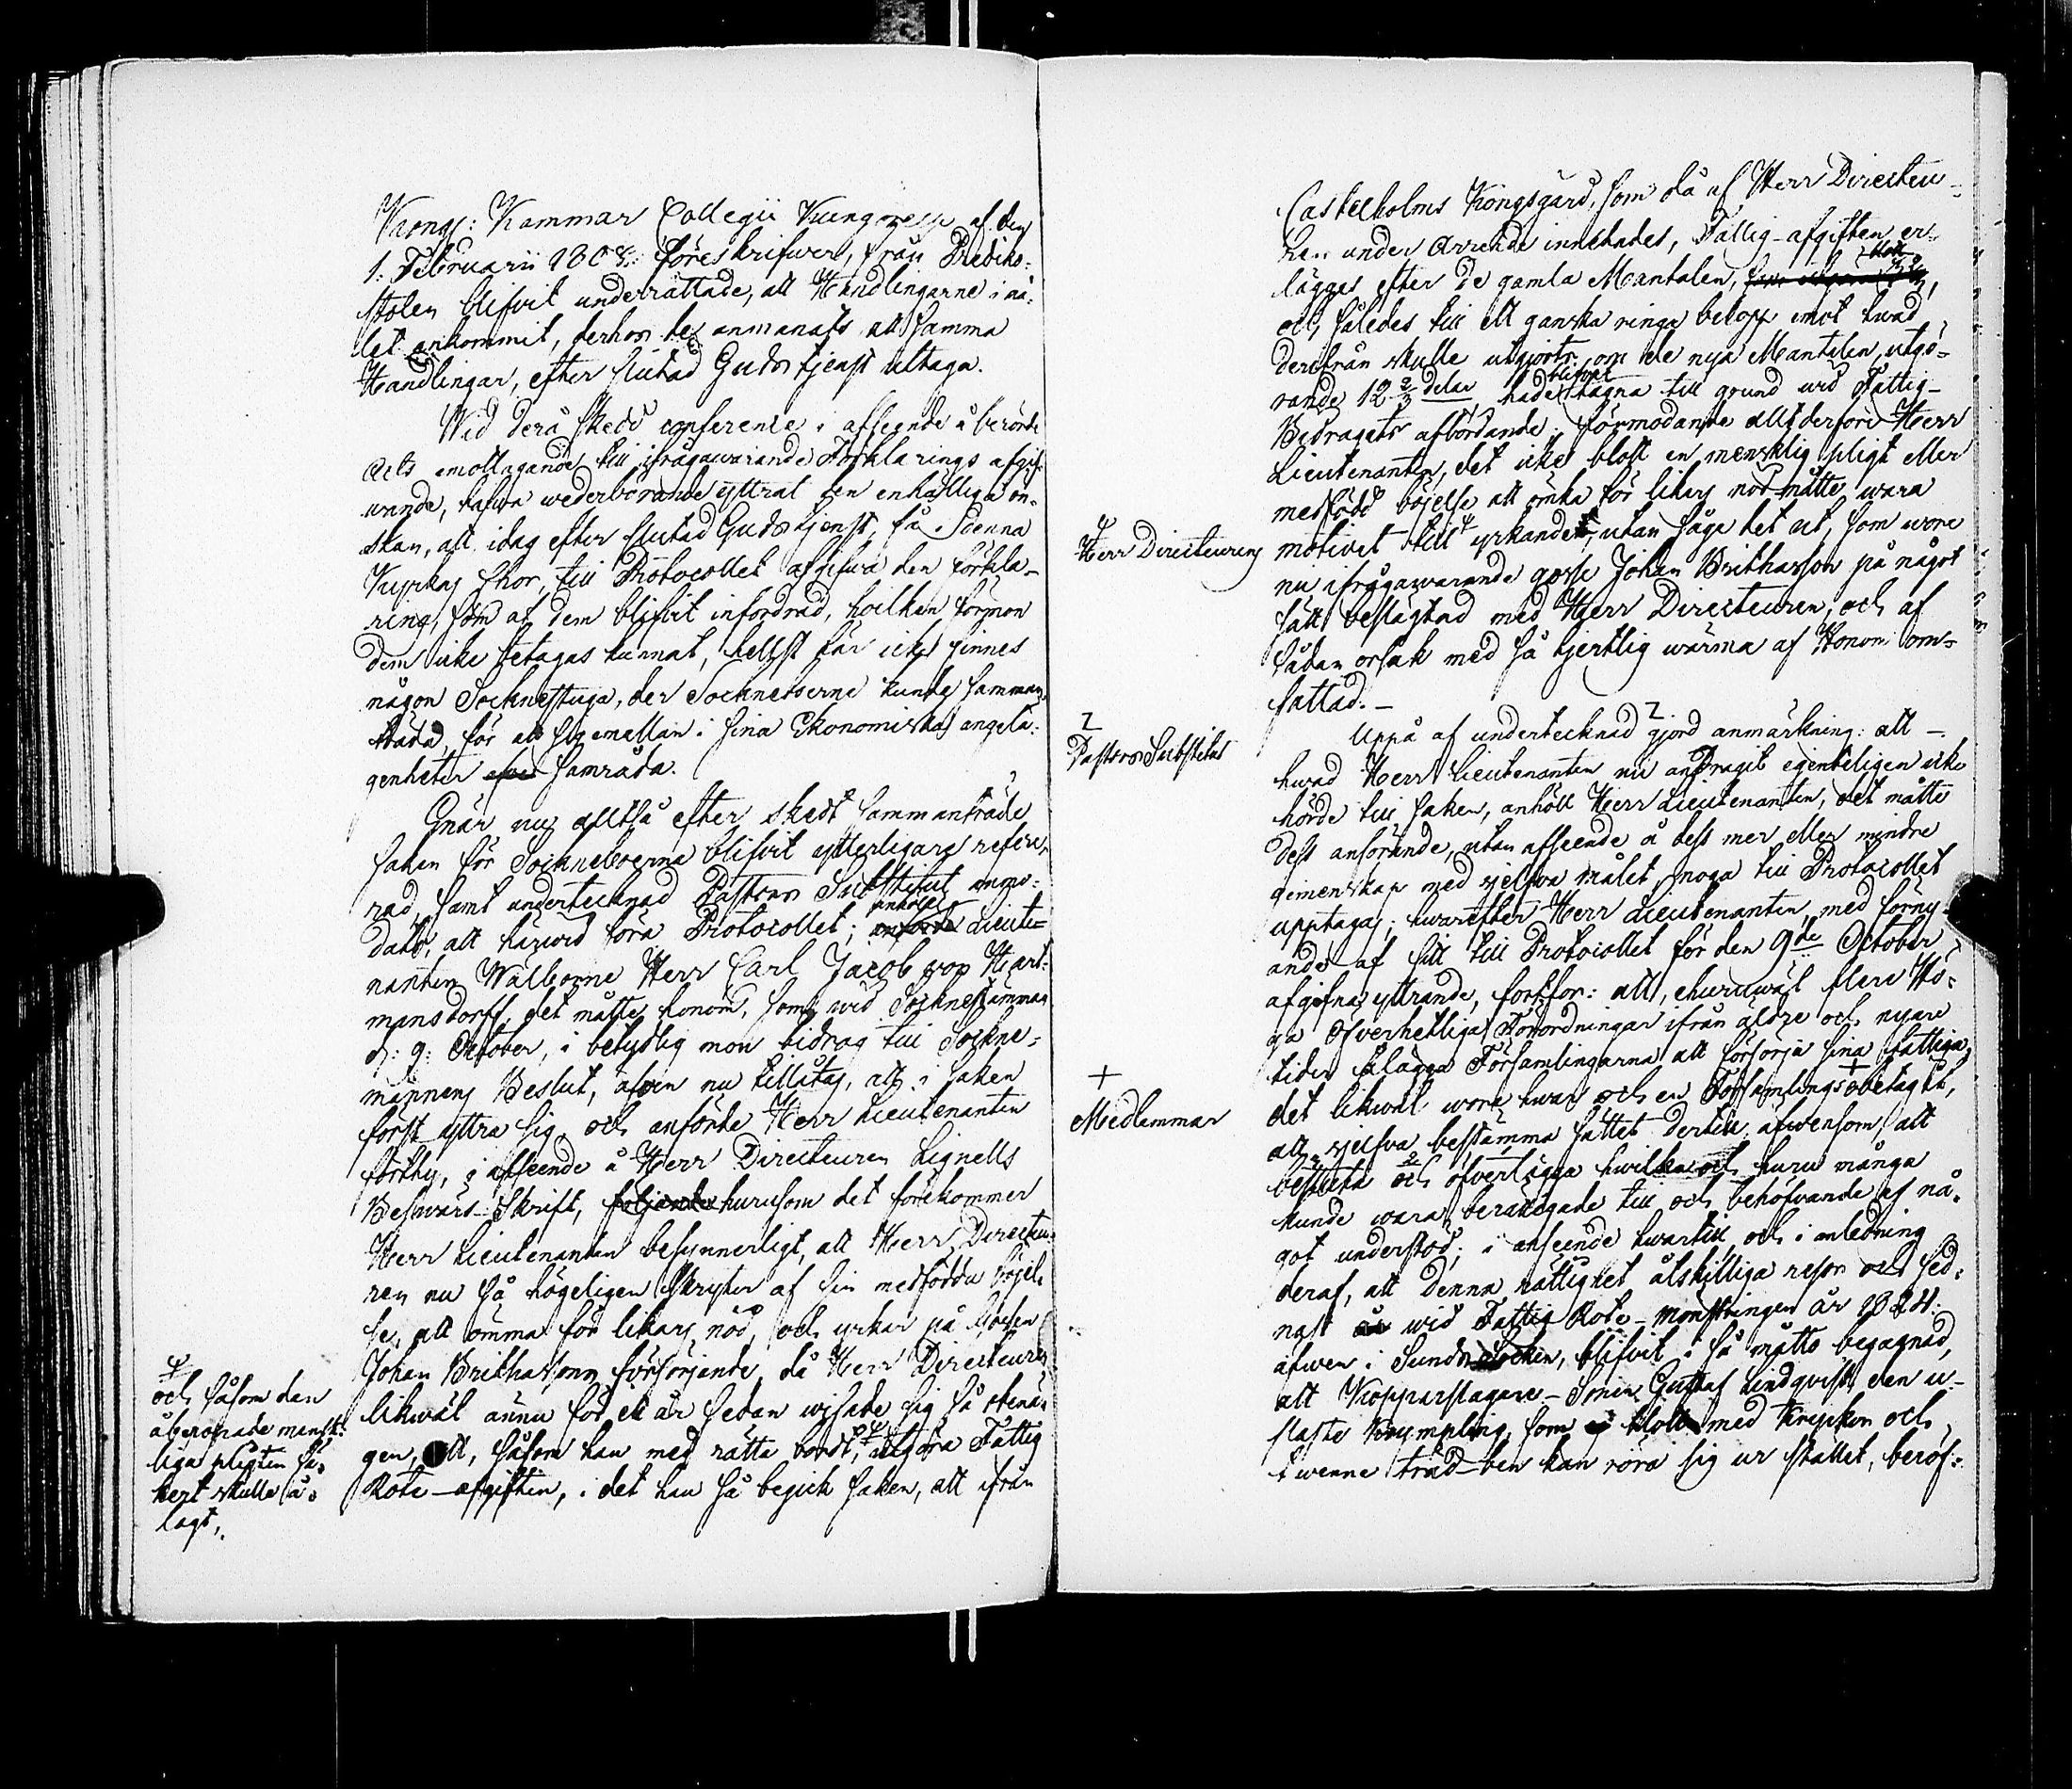 Kongl: Kammar Collegii Kungörelse af den
1. Februarii 1808: föreskrifwer, från Prediko-
stolen blifvit underrättade, att Handlingarne i må-
let ankommit, derhos de anmanats att samma
Handlingar, efter slutad Gudstjenst uttaga.
Wid derå skedd conference i afseende å berörde
Acts emottagande till ifrågawarande Förklarings afgif-
wande, hafwa wederbörande yttrat den enhälliga ön-
skan, att idag efter slutad Gudstjenst, få i denna
Kyrkas Chor, till Protocollet afgifwa den förkla-
ring, som af dem blifvit infordrad, hvilken förmon
dem icke betagas kunnat, hellst här icke finnes
någon Sochnestuga, der Sochneboerne kunde samman-
träda, för att sig emellan i sina Ekonomiska angelä-
genheter samråda.
Enär nu alltså efter skedt sammanträde
saken för Sochneboerna blifvit ytterligare refere-
rad, samt undertecknad Pastors Substitut anmo-
dats, att härwid föra Protocollet; anhöll Lieute-
nanten Wälborne Herr Carl Jacob von Hart-
mansdorff, det måtte honom, som wid Sochnestämman
d: 9: October, i betydlig mon bidrog till Sochne-
männens Beslut, äfven nu tillåtas, att i saken
först yttra sig, och anförde Herr Lieutenanten
förthy, i afseende å Herr Directeuren Lignells
Beswärs-Skrift, följande hurusom det förekommer
Herr Lieutenanten besynnerligt, att Herr Directeu-
ren nu så högeligen skryter af sin medfödda böjel-
se, att ömma för likars nöd, och yrkar på Gossen
Johan Brithassons försörjande, då Herr Directeuren
likwäl ännu för ett år sedan wisade sig så obenä-
gen, att, såsom han med rätta bordt, utgöra Fattig
Rote-afgiften, i det han så begick saken, att ifrån
och såsom den
åberopade mensk-
liga pligten sä-
kert skulle å-
lagt,
Castelholms Kongsgård, som då af Herr Directeu-
ren under Arrende innehades, Fattig-afgiften er-
lägges efter de gamla Mantalen,
och således till ett ganska ringa belopp emot hwad
derifrån skulle utgjorts, om de nya Mantalen, utgö-
rande 12 2/3 delar hade blifvit tagna till grund wid Fattig-
Bidragets afbördande; förmodande alltderföre Herr
Lieutenanten, det icke blott en mensklig pligt eller
medfödd böjelse att ömka för likars nöd måtte wara
motivet till yrkandet, utan såge det ut, som wore
nu ifrågawarande gosse Johan Brithasson på något
sätt beslägtad med Herr Directeuren, och af
sådan orsak med så hjertlig wärma af Honom om-
fattad.-
Herr Directeurens
Uppå af undertecknad gjord anmärkning: att -
hwad Herr Lieutenanten nu andragit egenteligen icke
hörde till saken, anhöll Herr Lieutenanten, det måtte
dess anförande, utan afseende å dess mer eller mindre
gemenskap med sjelfwa målet, noga till Protocollet
upptagas; hwarefter Herr Lieutenanten, med förny-
ande af sitt till Protocollet för den 9de October
afgifna yttrande, fortfor: att, ehuruwäl flere Hö-
ga Öfverhetliga Förordningar ifrån äldre och nyare
tider ålägga Församlingarna att försörja sina fattiga,
det likwäl wore hwar och en Församlings obetaget,
att sjelfva bestämma sättet dertill äfwensom, att
besluta och öfverlägga hwilka och huru många
kunde wara berättigade till och behöfvande af nå-
got understöd; i anseende hwartill och i anledning
deraf, att denna rättighet åtskilliga resor och sed-
nast wid Fattig Rote-Mönstringen år 1824:
äfwen i Sunds Socken, blifvit i så måtto begagnad,
att Kopparslagare-Sonen Gustaf Lindqvist, den u-
slaste Krympling, som blott med Kryckor och
twenne träd-ben kan röra sig ur stället, beröf-
Pastors Substitut
Medlemmar